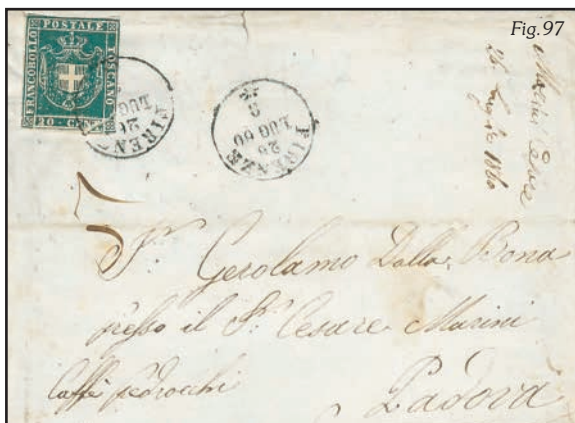 Fig.97
FRANCOBOLLO
POSTALE
TOSCANO
10 CENT
FIRENZE
26
LUG
FIRENZE
26
LUG 60
8
26 Luglio 1860
Sr. Gerolamo Dalla Bona
presso il Sr. Cesare Marini
Caffè Pedrocchi
Padova